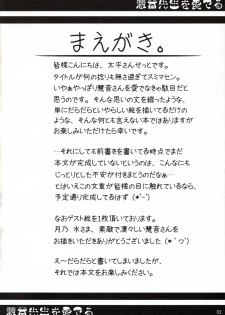 慧音先生を愛でる
まえがき。
皆様こんにちは、太平さんせっとです。
タイトルが何の捻りも無さ過ぎてスミマセン。
いやぁやっぱり慧音さんを愛でなきゃ駄目だと
思うのです。そんな思いの丈を綴ったような、
そんな何とも言えない本ではありますが
お楽しみいただけたら幸いです。
…それにしても前書きを書いてる時点でまだ
本文が完成していないというのは、こんなにも
じっとりとした不安が付きまとうだなぁ…
とはいえこの文章が皆様の目に触れているなら、
予定通り完成してるはず
なおゲスト絵を1枚頂いております。
月乃 水さま、素敵で凛々しい慧音さんを
お描きいただきありがとうございました
え〜だらだらと書いてしまいましたが、
それでは本文をお楽しみください。
慧音先生を愛でる